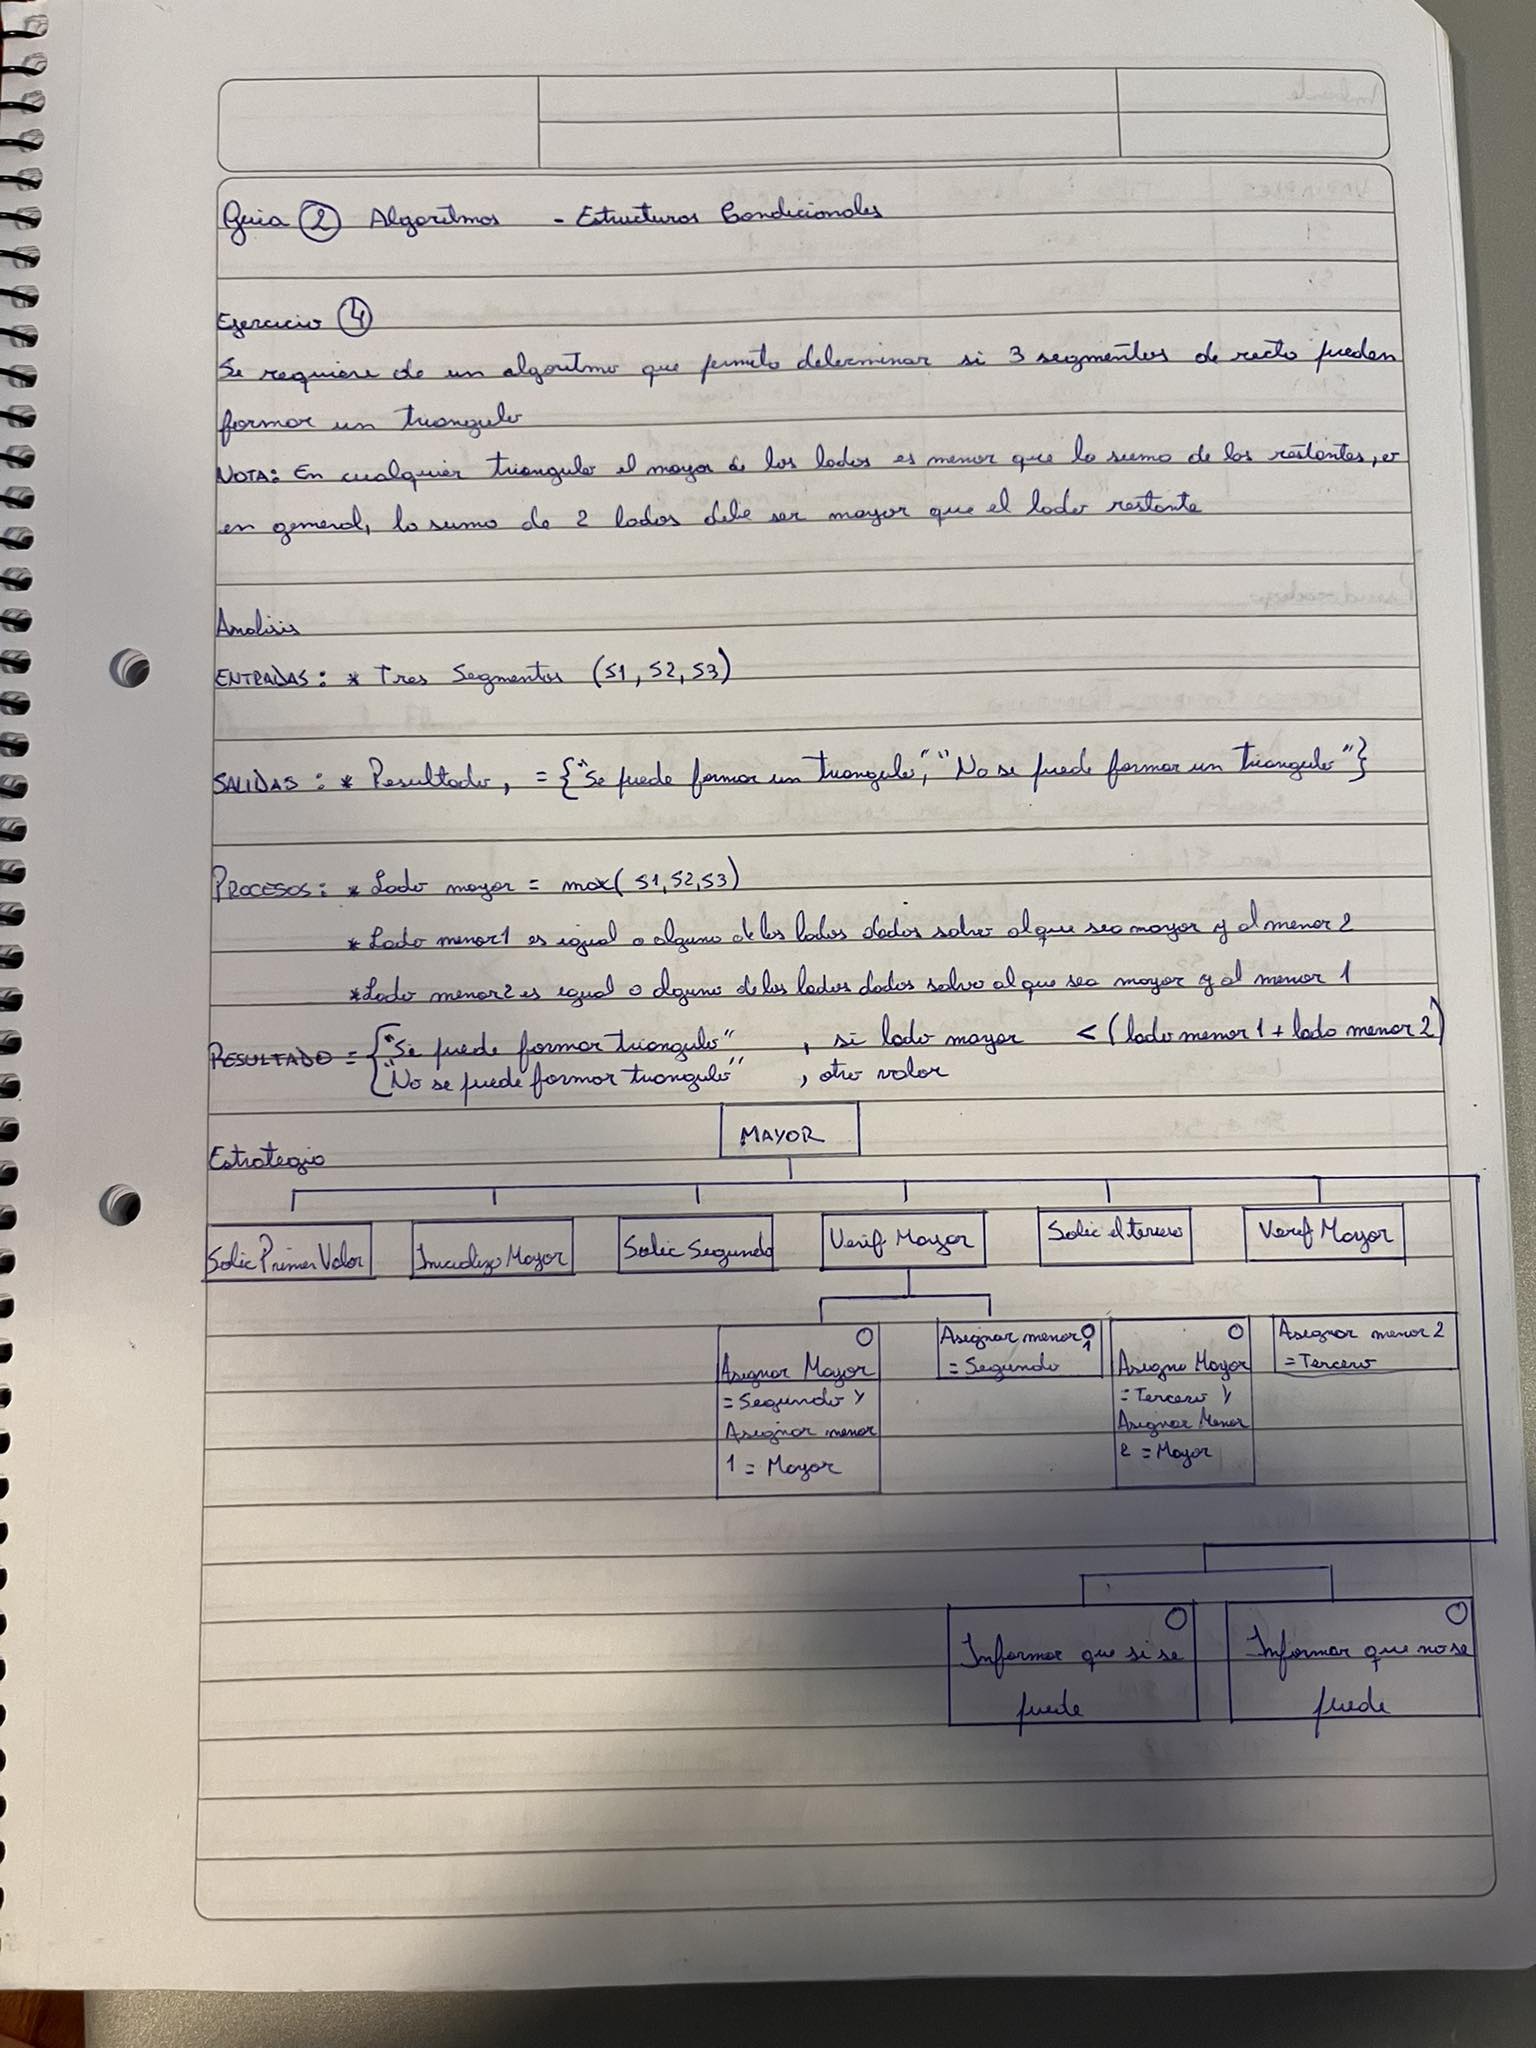 Guia 2 Algoritmos - Estructuras Condicionales
Ejercicio 4
Se requiere de un algoritmo que permita determinar si 3 segmentos de recta pueden
formar un triangulo
NOTA: En cualquier triangulo el mayor de los lados es menor que la suma de los restantes, o
en general, la suma de 2 lados debe ser mayor que el lado restante
Analisis
ENTRADAS: * Tres Segmentos (S1, S2, S3)
SALIDAS: * Resultado, = {"Se puede formar un triangulo", "No se puede formar un triangulo"}
PROCESOS: * Lado mayor = max( S1, S2, S3)
* Lado menor1 es igual a alguno de los lados dados salvo al que sea mayor y al menor 2
* Lado menor2 es igual a alguno de los lados dados salvo al que sea mayor y al menor 1
RESULTADO = { "Se puede formar triangulo" , si lado mayor < (lado menor 1 + lado menor 2)
"No se puede formar triangulo" , otro valor
MAYOR
Estrategia
Solic Primer Valor Inicializo Mayor Solic Segundo Verif Mayor Solic el tercero Veref Mayor
Asignar Mayor
= Segundo y
Asignar menor
1 = Mayor
Asignar menor 1
= Segundo
Asigno Mayor
= Tercero y
Asignar Menor
2 = Mayor
Asignar menor 2
= Tercero
Informar que si se
puede
Informar que no se
puede